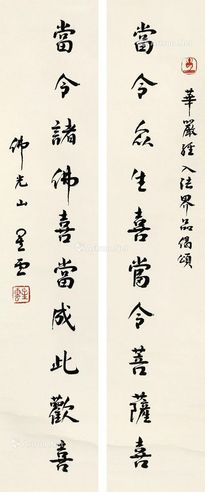 華嚴經入法界品偈頌
當令众生喜當令菩薩喜
當令諸佛喜當成此歡喜
佛光山 星雲